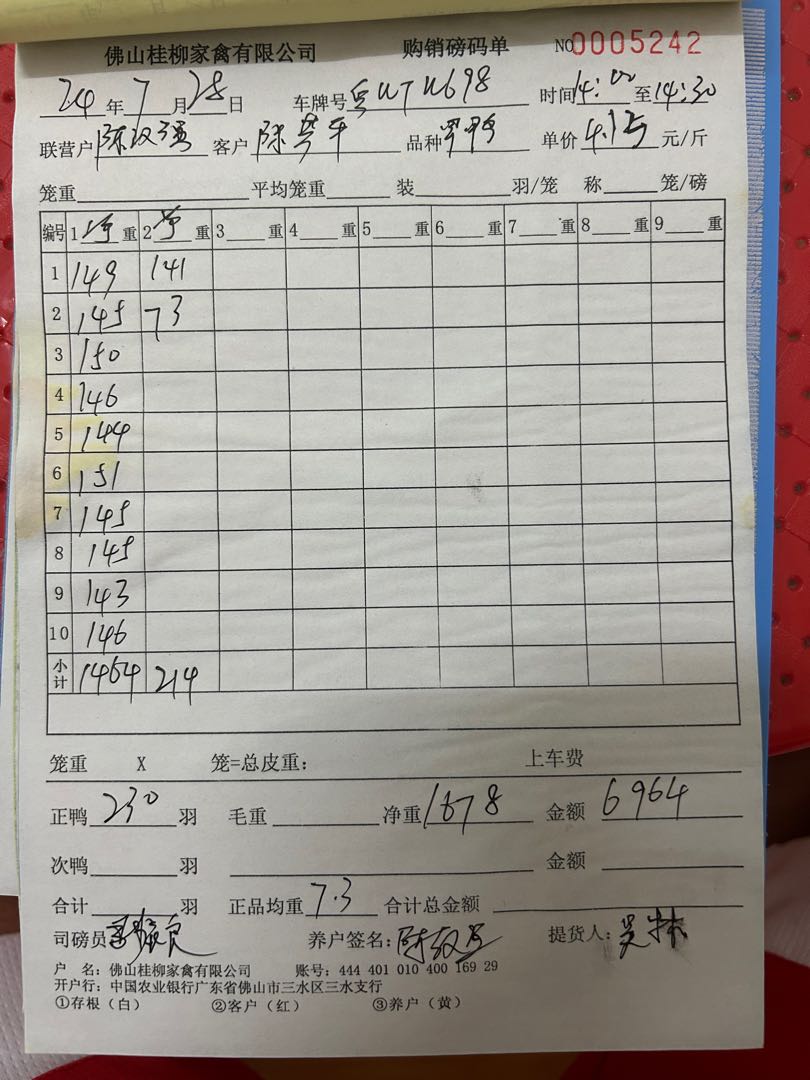 佛山桂柳家禽有限公司 购销磅码单 NO0005242
24年7月28日 车牌号 时间14:00至14:30
联营户 客户 陈 平 品种 单价4.15元/斤
笼重 平均笼重 装 羽/笼 称 笼/磅
编号 1 重 2 重 3 重 4 重 5 重 6 重 7 重 8 重 9 重
1 149 141
2 145 73
3 150
4 146
5 144
6 151
7 145
8 145
9 143
10 146
小计 1464 214
笼重 X 笼=总皮重: 上车费
正鸭230羽 毛重 净重1678 金额6964
次鸭 羽 金额
合计 羽 正品均重7.3 合计总金额
司磅员 养户签名: 提货人:
户 名: 佛山桂柳家禽有限公司 账号: 444 401 010 400 169 29
开户行: 中国农业银行广东省佛山市三水区三水支行
①存根(白) ②客户(红) ③养户(黄)